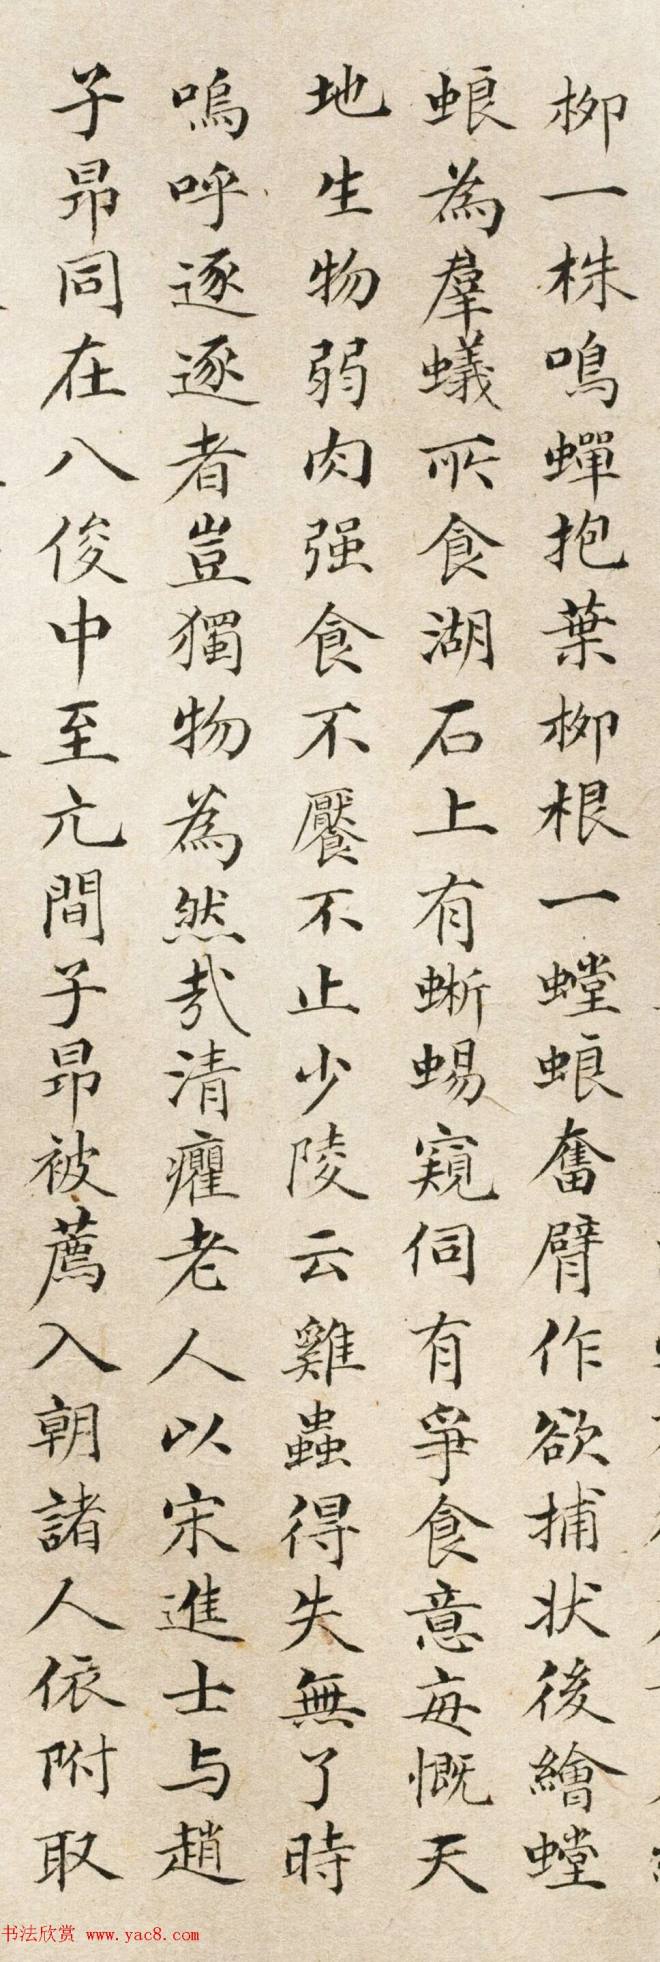 柳一株鳴蟬抱葉柳根一螳蜋奮臂作欲捕狀後繪螳
蜋為羣蟻所食湖石上有蜥蜴窺伺有爭食意每慨天
地生物弱肉强食不饜不止少陵云雞蟲得失無了時
嗚呼逐逐者豈獨物為然哉清癯老人以宋進士与趙
子昂同在八俊中至元間子昂被薦入朝諸人依附取
书法欣赏 www.yac8.com